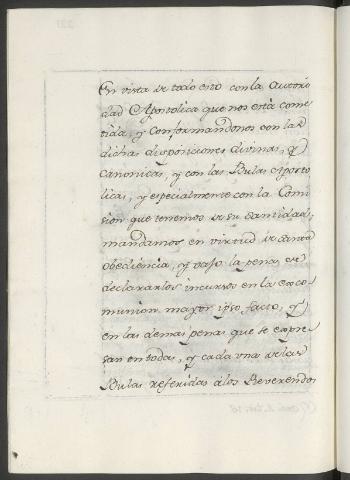 En vista de todo esto con la Autori
dad Apostolica que nos està come
tida, y conformandonos con las
dichas disposiciones divinas, y
canonicas, y con las Bulas Aposto
licas, y especialmente con la Comi
sion que tenemos de su Santidad,
mandamos en virtud de santa
obediencia, y vajo la pena de
declararlos incursos en la exco
munion mayor ipso facto, y
en las demas penas que se expre
san en todas, y cada una de las
Bulas referidas à los Reverendos